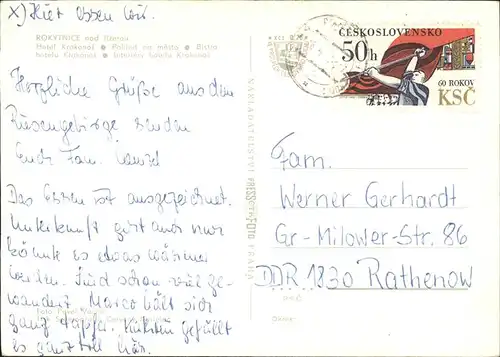 x) Hier essen wir.
ROKYTNICE nad Jizerou
Hotel Krakonoš • Pohled na město • Bistro
hotelu Krakonoš • Interiéry hotelu Krakonoš
Herzliche Grüße aus dem
Riesengebirge senden
Euch Fam.
Das Essen ist ausgezeichnet.
Unterkunft gut nur
könnte es etwas wärmer
werden. Sind schon viel ge-
wandert. Marco hält sich
ganz tapfer. gefällt
es ganz toll hier.
Foto: Pavel
NAKLADATELSTVÍ PRESSFOTO PRAHA
ČESKOSLOVENSKO
50h
60 ROKOV
KSČ
Fam.
Werner Gerhardt
Gr.-Milower-Str. 86
DDR 1830 Rathenow
PSČ